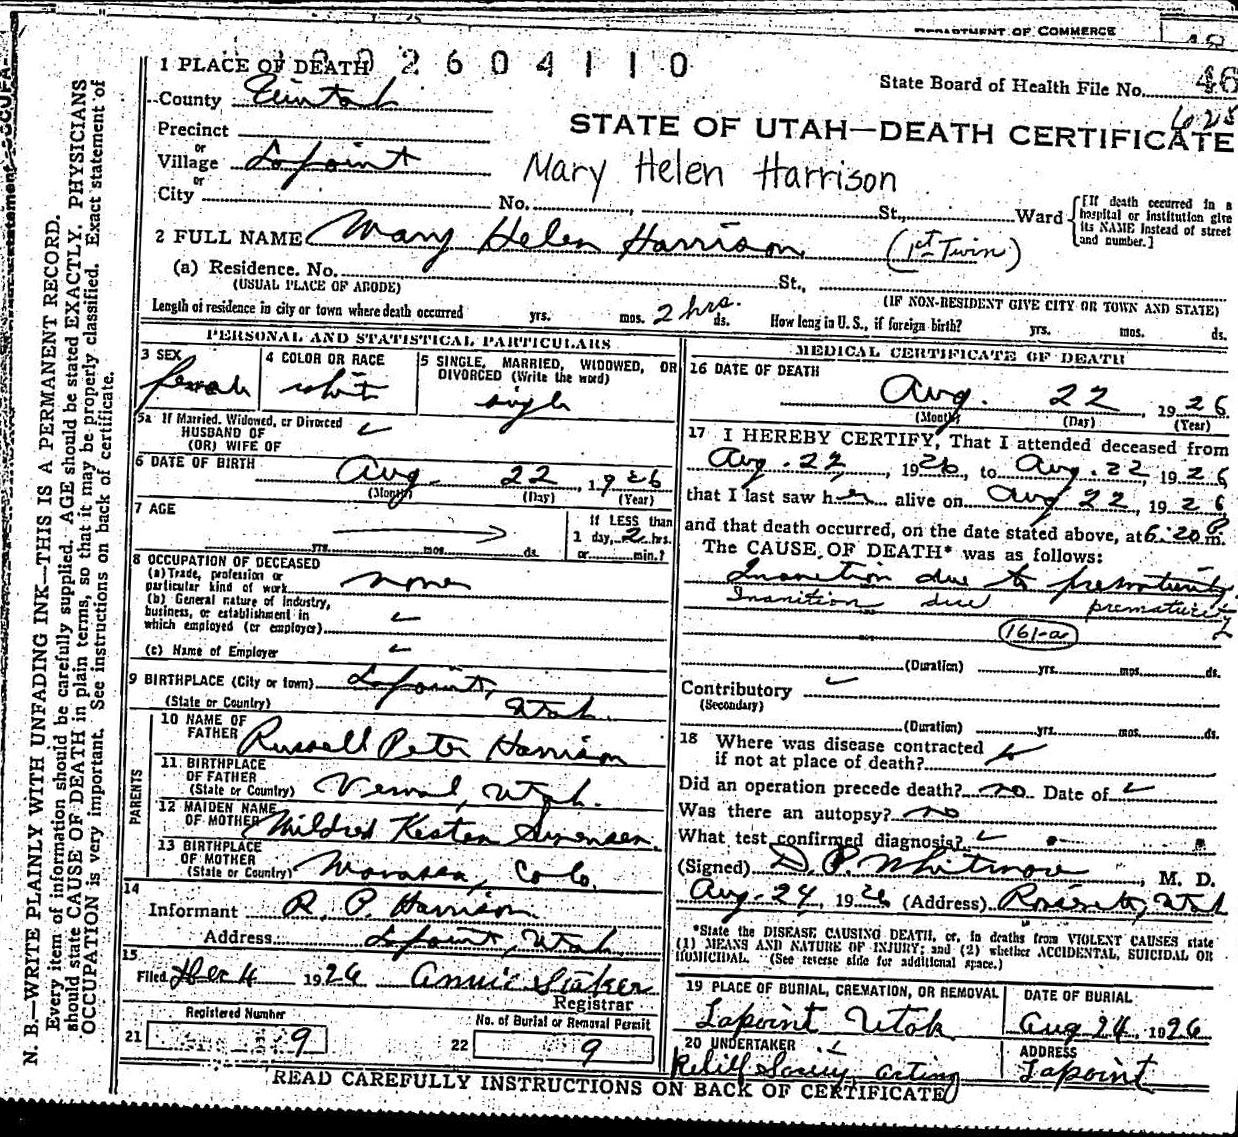 DEPARTMENT OF COMMERCE
1 PLACE OF DEATH
2604110
State Board of Health File No. 46
628
County Uintah
STATE OF UTAH—DEATH CERTIFICATE
Precinct
or
Village Lapoint
Mary Helen Harrison
or
City No. St., Ward
[If death occurred in a hospital or institution give its NAME instead of street and number.]
2 FULL NAME Mary Helen Harrison (1st Twin)
(a) Residence. No. St.,
(USUAL PLACE OF ABODE) (IF NON-RESIDENT GIVE CITY OR TOWN AND STATE)
Length of residence in city or town where death occurred yrs. mos. 2 hrs. ds. How long in U. S., if foreign birth? yrs. mos. ds.
PERSONAL AND STATISTICAL PARTICULARS
3 SEX female
4 COLOR OR RACE white
5 SINGLE, MARRIED, WIDOWED, OR DIVORCED (Write the word) single
5a If Married, Widowed, or Divorced
HUSBAND OF
(OR) WIFE OF
6 DATE OF BIRTH Aug. 22, 1926
(Month) (Day) (Year)
7 AGE
yrs. mos. ds.
If LESS than
1 day, 2 hrs.
or min.?
8 OCCUPATION OF DECEASED
(a) Trade, profession or
particular kind of work none
(b) General nature of industry,
business, or establishment in
which employed (or employer)
(c) Name of Employer
9 BIRTHPLACE (City or town) Lapoint,
(State or Country) Utah.
PARENTS
10 NAME OF
FATHER Russell Peter Harrison
11 BIRTHPLACE
OF FATHER
(State or Country) Vernal, Utah.
12 MAIDEN NAME
OF MOTHER Mildred Kesten Sorensen
13 BIRTHPLACE
OF MOTHER
(State or Country) Manassa, Colo.
14
Informant R. P. Harrison
Address Lapoint, Utah
15
Filed Dec 4 1926 Annie Staker
Registrar
Registered Number
21 9
No. of Burial or Removal Permit
22 9
MEDICAL CERTIFICATE OF DEATH
16 DATE OF DEATH
Aug. 22, 1926
(Month) (Day) (Year)
17 I HEREBY CERTIFY, That I attended deceased from
Aug. 22, 1926, to Aug. 22, 1926
that I last saw her alive on Aug 22, 1926
and that death occurred, on the date stated above, at 6:20 P m.
The CAUSE OF DEATH* was as follows:
Inanition due to prematurity.
Inanition due prematurity
161-a
(Duration) yrs. mos. ds.
Contributory
(Secondary)
(Duration) yrs. mos. ds.
18 Where was disease contracted
if not at place of death?
Did an operation precede death? no Date of
Was there an autopsy? no
What test confirmed diagnosis?
(Signed) D. P. Whitmore, M. D.
Aug. 24, 1926 (Address) Roosevelt, Utah
*State the DISEASE CAUSING DEATH, or, in deaths from VIOLENT CAUSES state
(1) MEANS AND NATURE OF INJURY; and (2) whether ACCIDENTAL, SUICIDAL OR
HOMICIDAL. (See reverse side for additional space.)
19 PLACE OF BURIAL, CREMATION, OR REMOVAL
Lapoint Utah
DATE OF BURIAL
Aug 24, 1926
20 UNDERTAKER
Relief Society acting
ADDRESS
Lapoint
READ CAREFULLY INSTRUCTIONS ON BACK OF CERTIFICATE
N. B.—WRITE PLAINLY WITH UNFADING INK—THIS IS A PERMANENT RECORD.
Every item of information should be carefully supplied. AGE should be stated EXACTLY. PHYSICIANS
should state CAUSE OF DEATH in plain terms, so that it may be properly classified. Exact statement of
OCCUPATION is very important. See instructions on back of certificate.